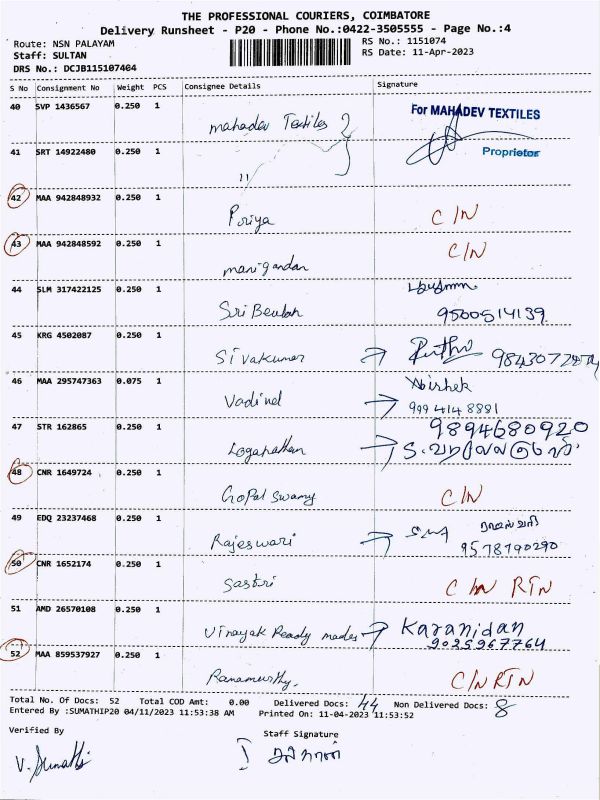 THE PROFESSIONAL COURIERS, COIMBATORE
Delivery Runsheet - P20 - Phone No.:0422-3505555 - Page No.:4
Route: NSN PALAYAM RS No.: 1151074
Staff: SULTAN RS Date: 11-Apr-2023
DRS No.: DCJB115107404
S No Consignment No Weight PCS Consignee Details Signature
40 SVP 1436567 0.250 1 Mahadev Textiles For MAHADEV TEXTILES
Proprietor
41 SRT 14922480 0.250 1 11
42 MAA 942848932 0.250 1 Poriya C/N
43 MAA 942848592 0.250 1 manigandan C/N
44 SLM 317422125 0.250 1 Sri Beulah 9500514139
45 KRG 4502087 0.250 1 Sivakumar
46 MAA 295747363 0.075 1 Vadivel Abishek
999 414 8881
47 STR 162865 0.250 1 Loganathan 9894680920
48 CNR 1649724 0.250 1 Gopal swamy C/N
49 EDQ 23237468 0.250 1 Rajeswari 9578790290
50 CNR 1652174 0.250 1 Sastri C/N RTN
51 AMD 26570108 0.250 1 Vinayak Ready mades Karanidan
9025967764
52 MAA 859537927 0.250 1 Ramamurthy. C/N RTN
Total No. Of Docs: 52 Total COD Amt: 0.00 Delivered Docs: 44 Non Delivered Docs: 8
Entered By :SUMATHIP20 04/11/2023 11:53:38 AM Printed On: 11-04-2023 11:53:52
Verified By Staff Signature
V. Sumathi